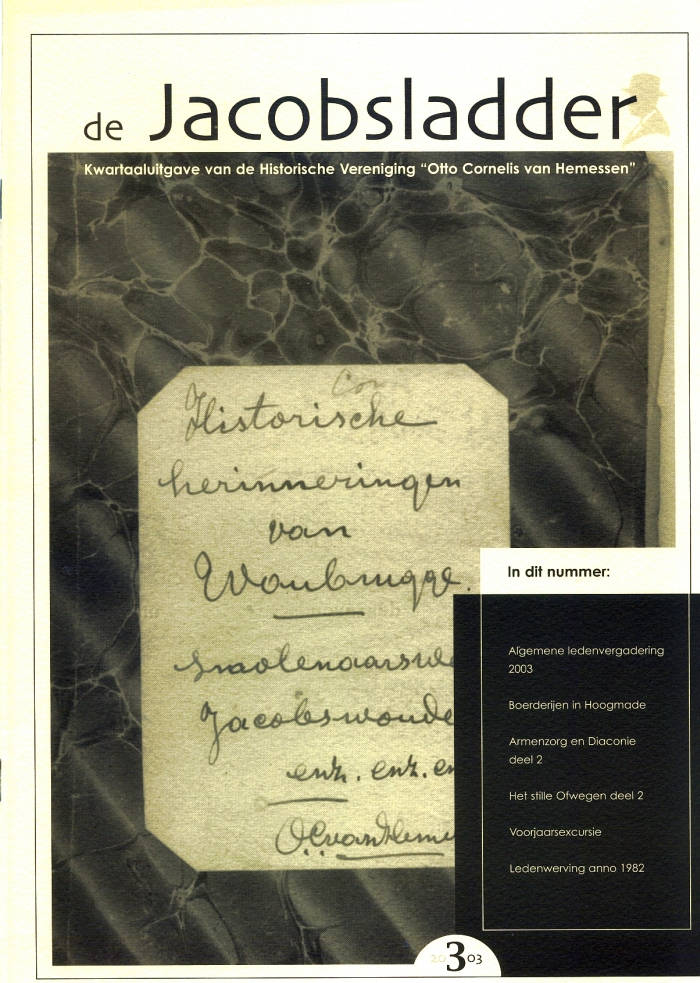 de Jacobsladder
Kwartaaluitgave van de Historische Vereniging “Otto Cornelis van Hemessen”
Historische
herinneringen
van
Woubrugge.
Jacobswoude
enz. enz. en
O.C. van Heme
In dit nummer:
Algemene ledenvergadering
2003
Boerderijen in Hoogmade
Armenzorg en Diaconie
deel 2
Het stille Ofwegen deel 2
Voorjaarsexcursie
Ledenwerving anno 1982
20 3 03